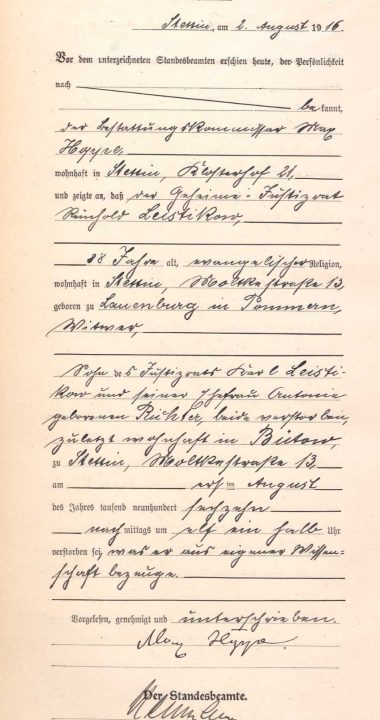 Stettin, am 2. August 1916.
Vor dem unterzeichneten Standesbeamten erschien heute, der Persönlichkeit
nach
be kannt,
der Bestattungskommissar Max
wohnhaft in Stettin, Klosterhof 21,
und zeigte an, daß der Geheime Justizrat
Reinhold Leistikow,
88 Jahre alt, evangelischer Religion,
wohnhaft in Stettin, Moltkestraße 13,
geboren zu Lauenburg in Pommern,
Witwer,
Sohn des Justizrats Karl Leisti-
kow und seiner Ehefrau Antonie
geborenen Richter, beide verstorben,
zuletzt wohnhaft in Bütow,
zu Stettin, Moltkestraße 13,
am ersten August
des Jahres tausend neunhundert sechzehn
nachmittags um elf ein halb Uhr
verstorben sei, was er aus eigener Wissen-
schaft bezeuge.
Vorgelesen, genehmigt und unterschrieben.
Max
Der Standesbeamte.